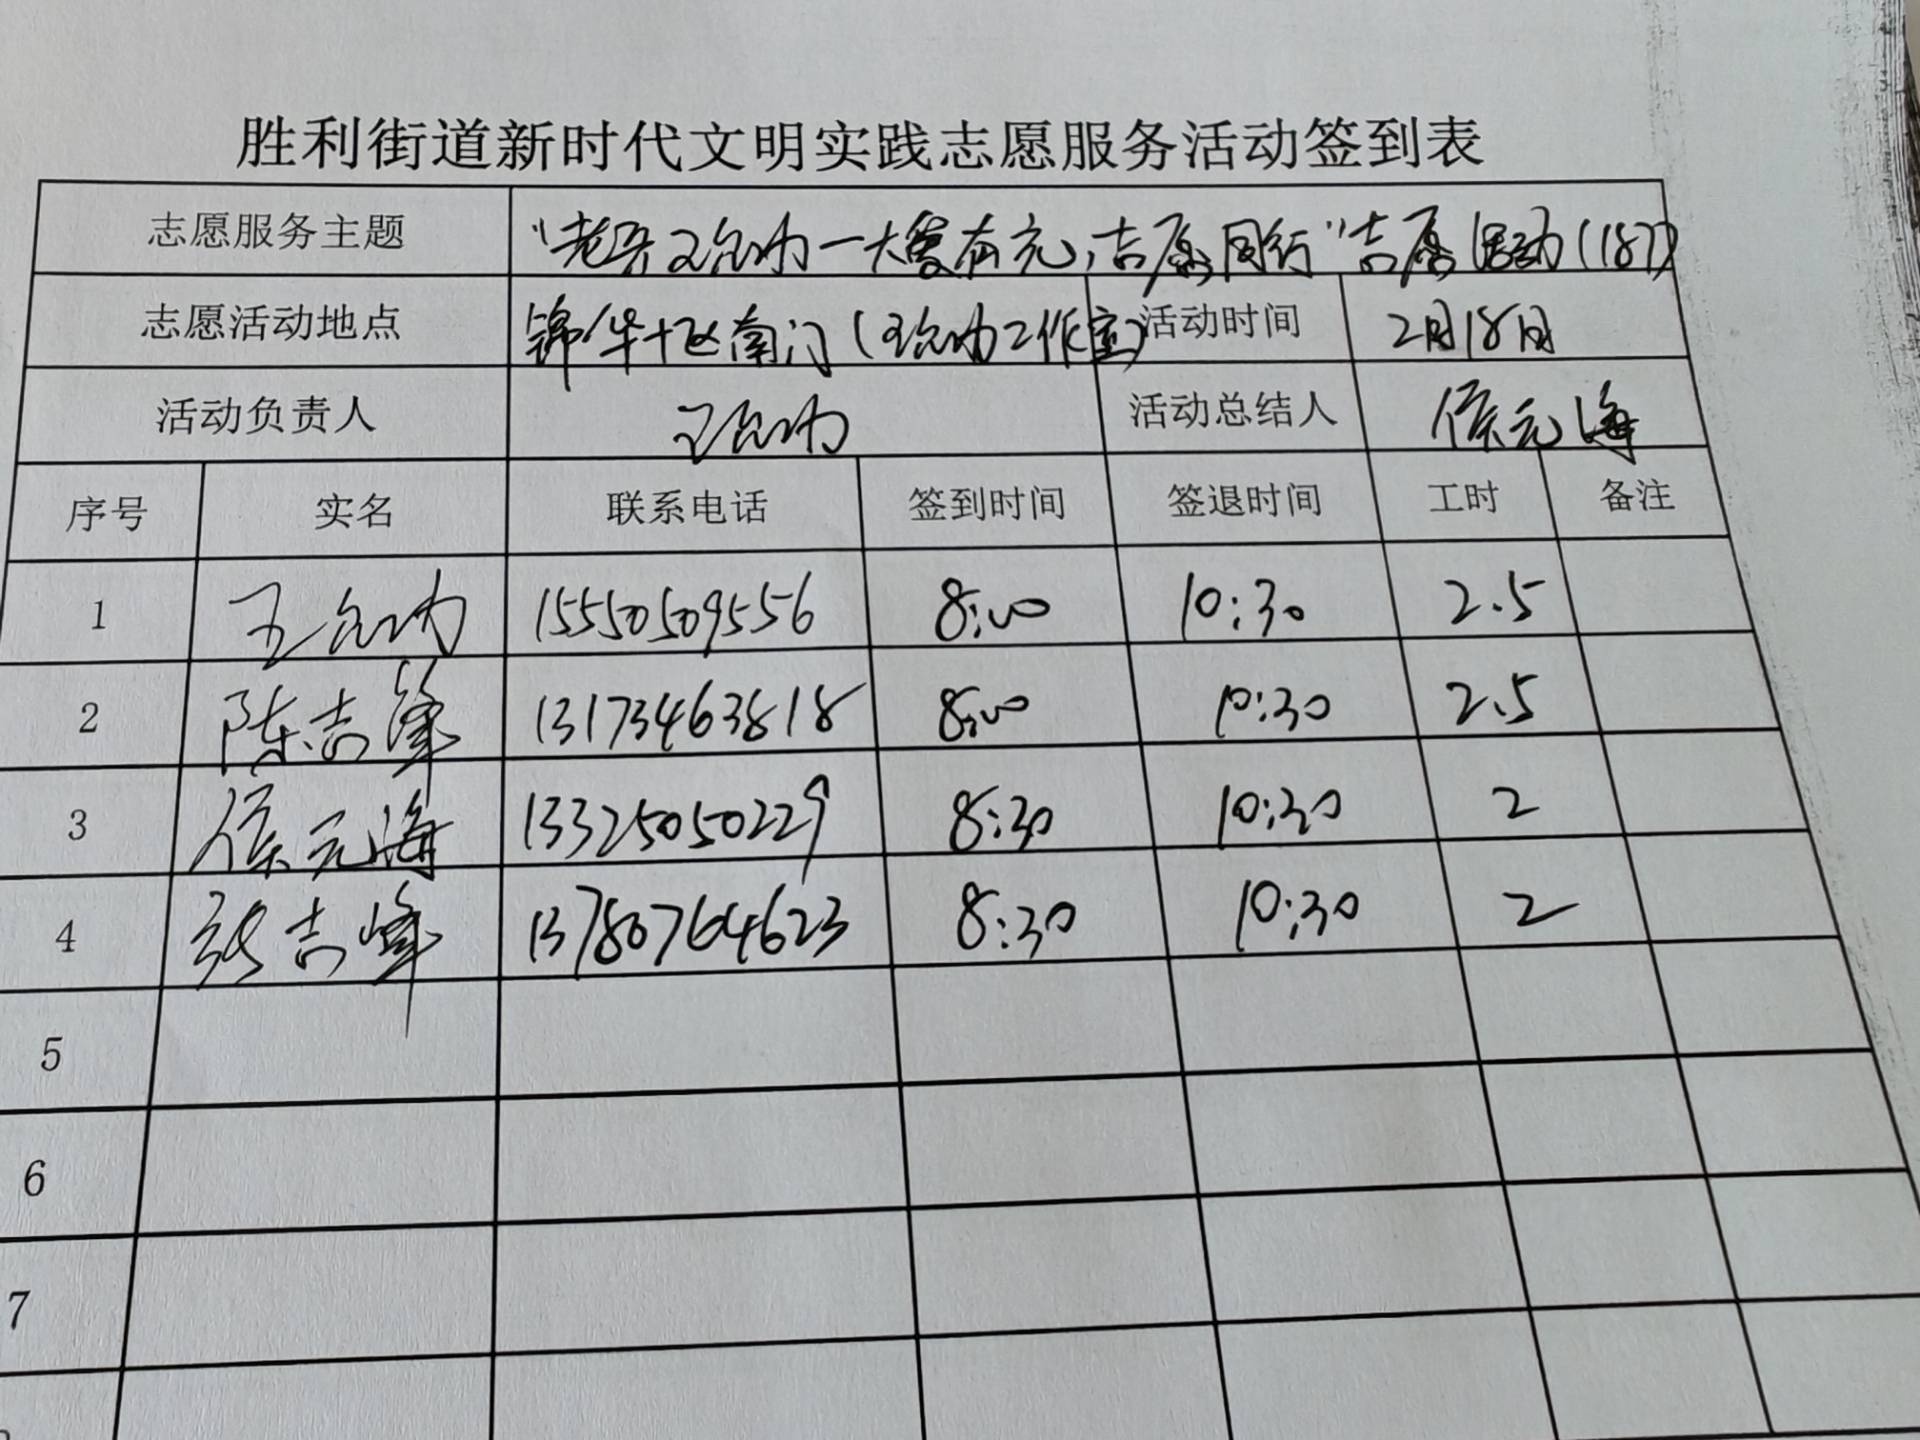 胜利街道新时代文明实践志愿服务活动签到表
志愿服务主题 "老兵王 一大爱有元,志愿同行"志愿活动(187)
志愿活动地点 锦华十区南门(王 工作室) 活动时间 2月18日
活动负责人 王 活动总结人 侯元海
序号 实名 联系电话 签到时间 签退时间 工时 备注
1 王 15550509556 8:00 10:30 2.5
2 陈志峰 13173463818 8:00 10:30 2.5
3 侯元海 13325050229 8:30 10:30 2
4 张吉峰 13780764623 8:30 10:30 2
5
6
7